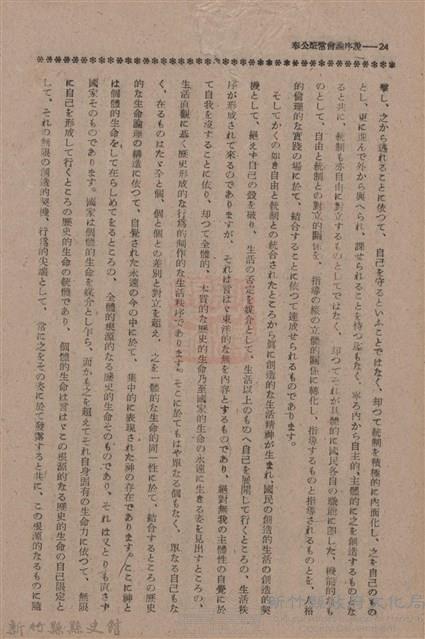 奉公壯常會論序說——24
擊し、之から遁れることに依つて、自己を守るといふことではなく、却つて統制を積極的に內面化し、之を自己のもの
とし、更に進んで外から與へられ、課せられることを待つ迄もなく、寧ろ內から自主的、主體的に之を創造するものとな
ると共に、統制も亦自由に對立するものとしてではなく、却つてそれが具體的に國民各自の職能に卽した、機能的なも
のとして、自由と統制との對立的關係を、指導の線の立體的關係に轉化し、指導するものと指導されるものとを、一
的倫理的な實踐の場に於て、結合することに依つて達成せられるものであります。
そしてかくの如き自由と統制との統合されたところから眞に創造的な生活精神が生まれ、國民の創造的生活の創造的契
機として、絕えず自己の殼を破り、生活の否定を媒介として、生活以上のものへ自己を展開して行くところの、生活秩
序が形成されて來るのでありますが、それは言はゞ東洋的な無を內容とするものであり、絕對無我の主體性の自覺に於
て自我を沒することに依り、却つて全體的、本質的な歷史的生命乃至國家的生命の永遠に生きる姿を見出すところの、
生活直觀に基く歷史形成的な行爲的制作的な生活秩序であります。そこに於てもはや單なる個もなく、單なる自己もな
く、在るものはたゞ全と個、個と個との差別と對立を超え、之を一體的な生命的同一性に於て、結合するところの歷史
的な生命論理の構造に依つて、自覺された永遠の今の中に於て、集中的に表現された神の存在であります。ここに神と
は個體的生命をして在らしめてをるところの、全體的根源的なる歷史的生命そのものであり、それは又とりも直さず
國家そのものであります。國家は個體的生命を媒介とし乍ら、而かも之を超えてそれ自身固有の生命力に依つて、無限
に自己を形成して行くところの歷史的生命の統體であり、個體的生命は言はゞこの根源的なる歷史的生命の自己限定と
して、それの無限の創造的契機、行爲的尖端として、常に之をその姿に於て發露すると共に、この根源的なるものに隨
新竹縣縣史館
新竹縣政府文化局